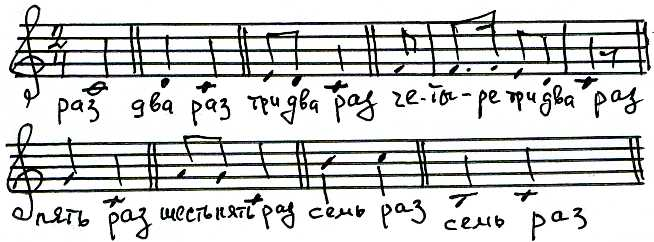 раз два раз три два раз че-ты-ре три два раз
пять раз шесть пять раз семь раз семь раз